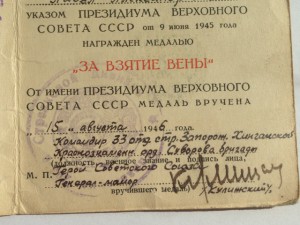 УКАЗОМ ПРЕЗИДИУМА ВЕРХОВНОГО
СОВЕТА СССР от 9 июня 1945 года
НАГРАЖДЕН МЕДАЛЬЮ
„ЗА ВЗЯТИЕ ВЕНЫ"
От имени ПРЕЗИДИУМА ВЕРХОВНОГО
СОВЕТА СССР МЕДАЛЬ ВРУЧЕНА
„15" августа 1946 года.
Командир 33 отд стр. Запорож. Хинганской
Краснознамен. орд. Суворова бригады
(должность, военное звание и подпись лица,
М. П. Герой Советского Союза
Генерал-майор
вручившего медаль) (Кулижский)